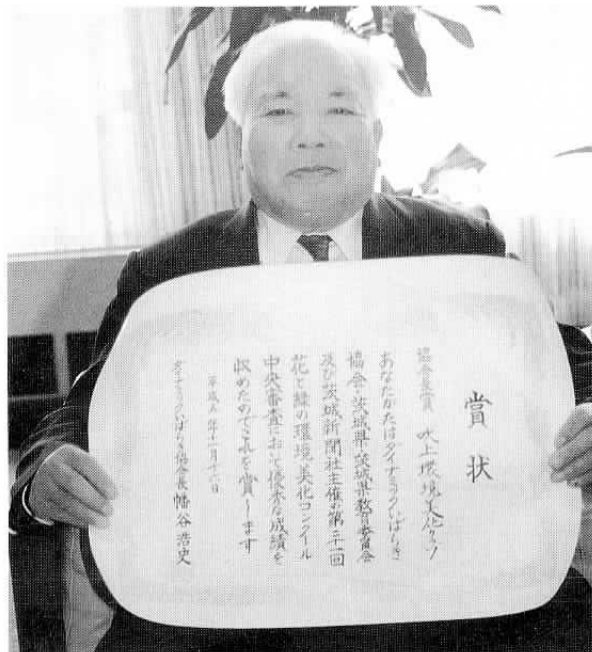 賞状
協会長賞 吹上環境美化クラブ
あなたがたはダイナミックいばらき
協会・茨城県・茨城県教育委員会
及び茨城新聞社主催の第二十一回
花と緑の環境美化コンクール
中央審査において優秀な成績を
収めたのでこれを賞します
平成 年十一月十六日
ダイナミックいばらき協会長 幡谷浩史